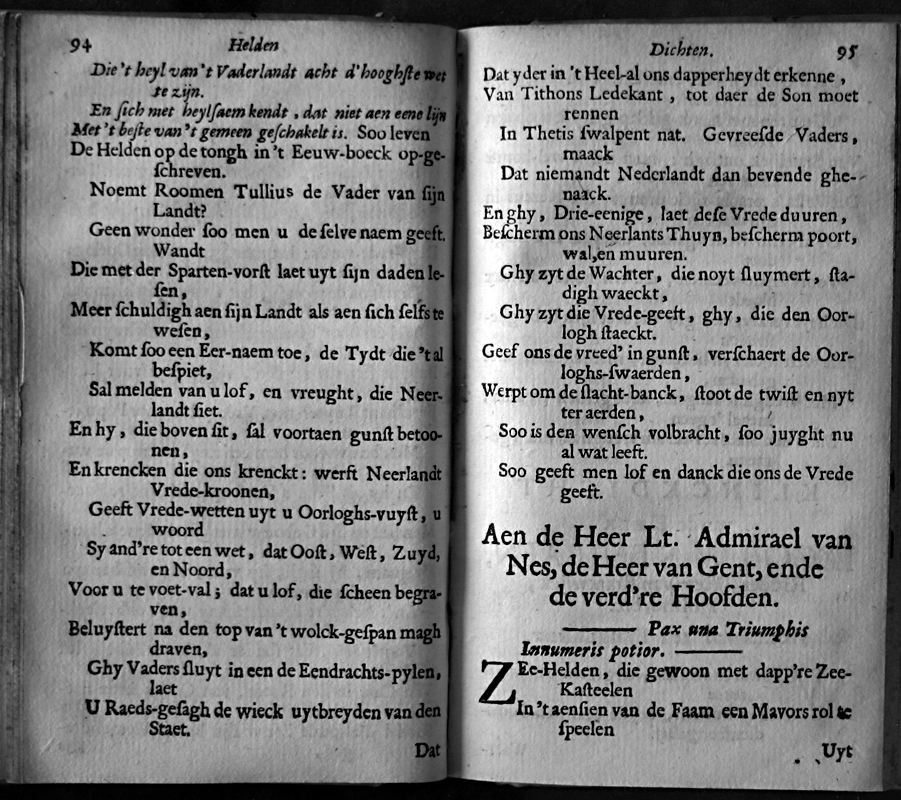 94 Helden
Die 't heyl van 't Vaderlandt acht d'hooghſte wet
te zijn.
En ſich met heylſaem kendt, dat niet aen eene lijn
Met 't beſte van 't gemeen geſchakelt is. Soo leven
De Helden op de tongh in 't Eeuw-boeck op-ge-
ſchreven.
Noemt Roomen Tullius de Vader van ſijn
Landt?
Geen wonder ſoo men u de ſelve naem geeft.
Wandt
Die met der Sparten-vorſt laet uyt ſijn daden le-
ſen,
Meer ſchuldigh aen ſijn Landt als aen ſich ſelfs te
weſen,
Komt ſoo een Eer-naem toe, de Tydt die 't al
beſpiet,
Sal melden van u lof, en vreught, die Neer-
landt ſiet.
En hy, die boven ſit, ſal voortaen gunſt betoo-
nen,
En krencken die ons krenckt: werft Neerlandt
Vrede-kroonen,
Geeft Vrede-wetten uyt u Oorloghs-vuyſt, u
woord
Sy and're tot een wet, dat Ooſt, Weſt, Zuyd,
en Noord,
Voor u te voet-val; dat u lof, die ſcheen begra-
ven,
Beluyſtert na den top van 't wolck-geſpan magh
draven,
Ghy Vaders ſluyt in een de Eendrachts-pylen,
laet
U Raeds-geſagh de wieck uytbreyden van den
Staet.
Dat
Dichten. 95
Dat yder in 't Heel-al ons dapperheydt erkenne,
Van Tithons Ledekant, tot daer de Son moet
rennen
In Thetis ſwalpent nat. Gevreeſde Vaders,
maack
Dat niemandt Nederlandt dan bevende ghe-
naack.
En ghy, Drie-eenige, laet deſe Vrede duuren,
Beſcherm ons Neerlants Thuyn, beſcherm poort,
wal, en muuren.
Ghy zyt de Wachter, die noyt ſluymert, ſta-
digh waeckt,
Ghy zyt die Vrede-geeft, ghy, die den Oor-
logh ſtaeckt.
Geef ons de vreed' in gunſt, verſchaert de Oor-
loghs-ſwaerden,
Werpt om de ſlacht-banck, ſtoot de twiſt en nyt
ter aerden,
Soo is den wenſch volbracht, ſoo juyght nu
al wat leeft.
Soo geeft men lof en danck die ons de Vrede
geeft.
Aen de Heer Lt. Admirael van
Nes, de Heer van Gent, ende
de verd're Hoofden.
Pax una Triumphis
Innumeris potior.
ZEe-Helden, die gewoon met dapp're Zee-
Kaſteelen
In 't aenſien van de Faam een Mavors rol te
ſpeelen
Uyt